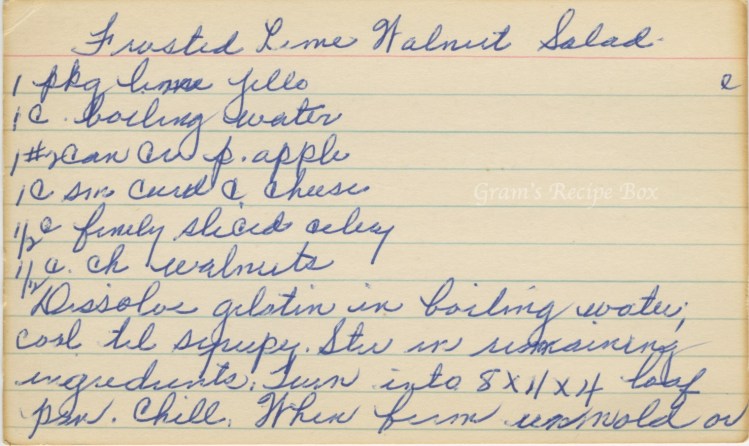 Frosted Lime Walnut Salad.
1 pkg lime jello
1 c. boiling water
1 #2 can cru p. apple
1 c sm curd c. cheese
1/2 c finely sliced celery
1/2 c. ch walnuts
Dissolve gelatin in boiling water,
cool til syrupy. Stir in remaining
ingredients. Turn into 8x4x4 loaf
pan. Chill. When firm unmold on
c
Gram's Recipe Box